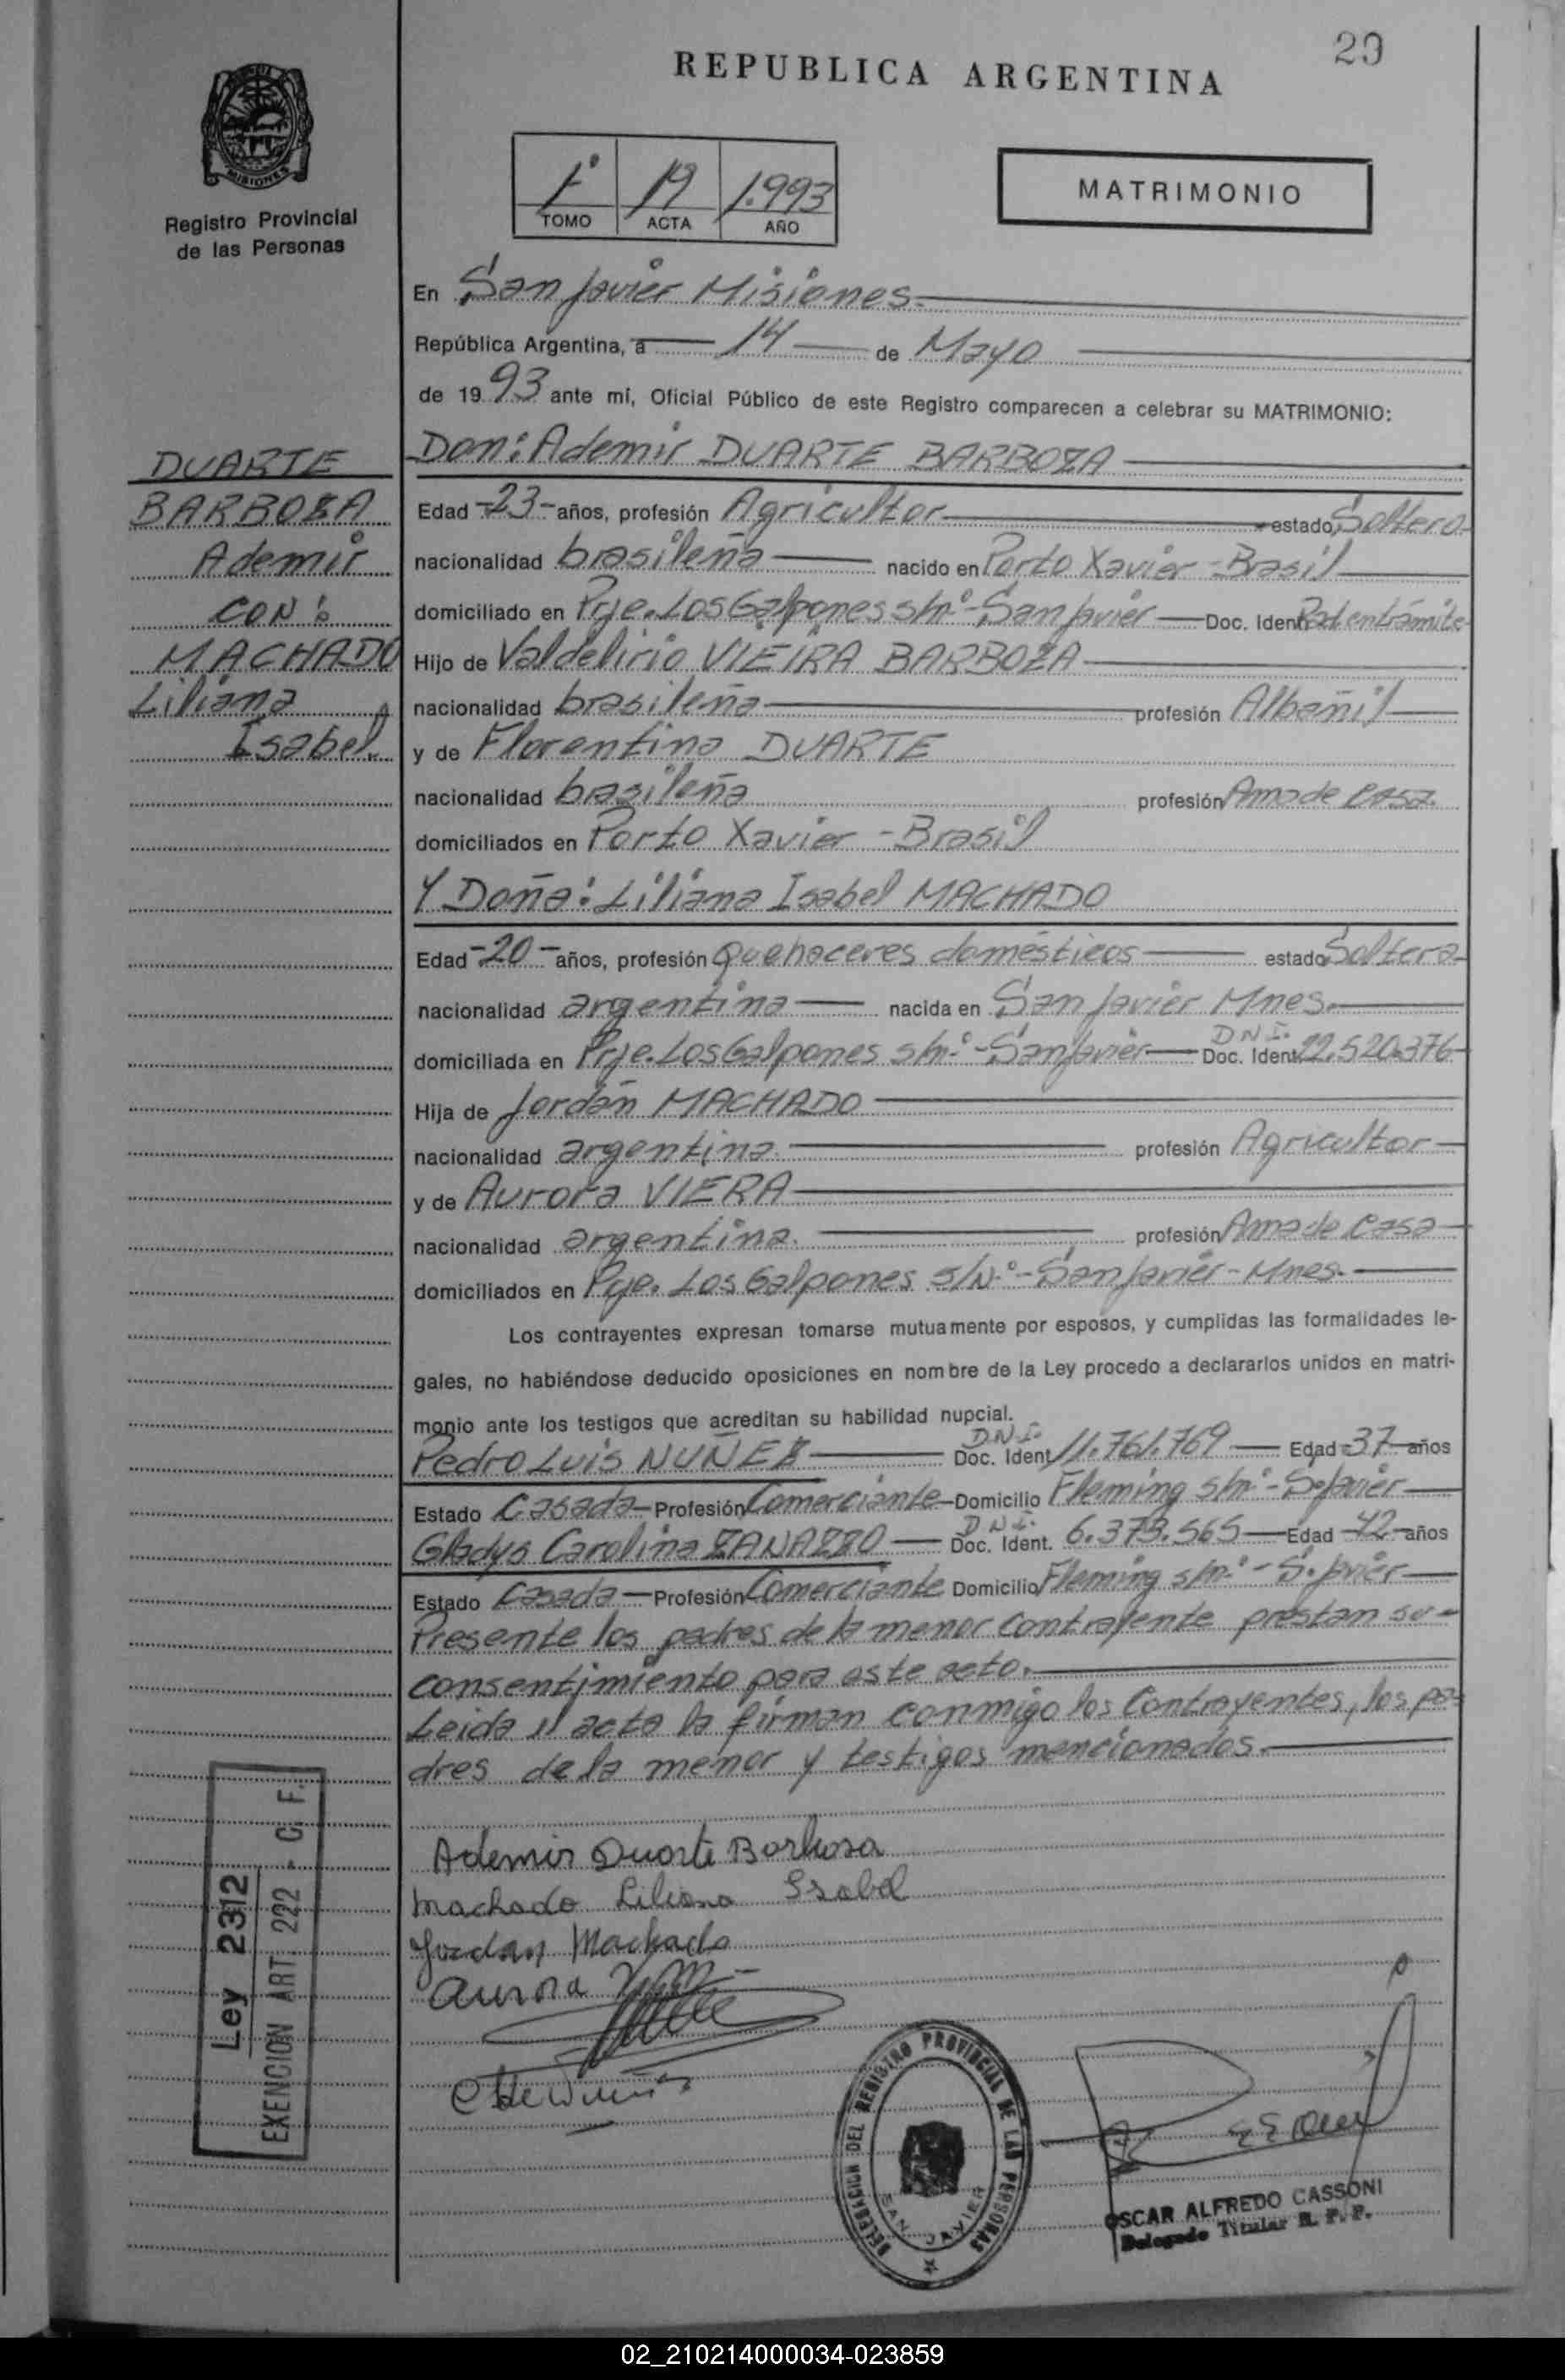 29
REPUBLICA ARGENTINA
MISIONES
Registro Provincial
de las Personas
1° 19 1.993
TOMO ACTA AÑO
MATRIMONIO
En San Javier Misiones.
República Argentina, a 14 de Mayo
de 1993 ante mí, Oficial Público de este Registro comparecen a celebrar su MATRIMONIO:
DUARTE
BARBOZA
Ademir
CON:
MACHADO
Liliana
Isabel.
Don: Ademir DUARTE BARBOZA
Edad -23- años, profesión Agricultor estado Soltero.
nacionalidad brasileña nacido en Porto Xavier - Brasil
domiciliado en Prje. Los Galpones s/n° - San Javier Doc. Ident. Rad. en trámite
Hijo de Valdelirio VIEIRA BARBOZA
nacionalidad brasileña profesión Albañil
y de Florentina DUARTE
nacionalidad brasileña profesión Ama de casa.
domiciliados en Porto Xavier - Brasil
Y Doña: Liliana Isabel MACHADO
Edad -20- años, profesión Quehaceres domésticos estado Soltera
nacionalidad argentina nacida en San Javier Mnes.
domiciliada en Prje. Los Galpones s/n° - San Javier Doc. Ident. D N I. 22.520.376
Hija de Jordán MACHADO
nacionalidad argentina. profesión Agricultor
y de Aurora VIERA
nacionalidad argentina. profesión Ama de casa
domiciliados en Prje. Los Galpones s/N.° - San Javier - Mnes.
Los contrayentes expresan tomarse mutuamente por esposos, y cumplidas las formalidades le-
gales, no habiéndose deducido oposiciones en nombre de la Ley procedo a declararlos unidos en matri-
monio ante los testigos que acreditan su habilidad nupcial.
Pedro Luis NUÑEZ D N I. Doc. Ident. 11.761.769 Edad 37 años
Estado Casado Profesión Comerciante Domicilio Fleming s/n° - S. Javier
Gladys Carolina ZANAZZO D N I. Doc. Ident. 6.373.565 Edad 42 años
Estado Casada Profesión Comerciante Domicilio Fleming s/n° - S. Javier
Presente los padres de la menor contrayente prestan su
consentimiento para este acto.
Leida el acta la firman conmigo los Contrayentes, los pa-
dres de la menor y testigos mencionados.
Ademir Duarte Barbosa
Machado Liliana Isabel
Jordan Machado
Aurora
Ley 2312
EXENCION ART. 222 - C. F.
DELEGACION DEL REGISTRO PROVINCIAL DE LAS PERSONAS
SAN JAVIER
OSCAR ALFREDO CASSONI
Delegado Titular R. P. P.
02_210214000034-023859